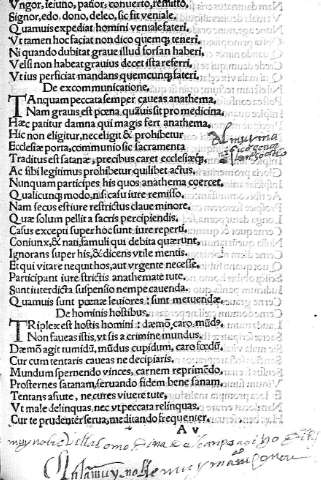 Vngor, ieiuno, patior, conuerto, remitto,
Signor, edo, dono, deleo, sic fit veniale.
Quamuis expediat homini veniale fateri,
Vt tamen hoc faciat non dico quemq̃ teneri,
Ni quando dubitat graue illud forsan haberi,
Velsi non habeat grauius decet ista referri,
Vt ius perficiat mandans quemcunq̃ fateri,
De excommunicatione.
TAnquam peccata semper caueas anathema,
Nam grauis est pœna, quãuis sit pro medicina,
Hæc patitur damna qui magis fert anathema,
Hic non eligitur, nec eligit & prohibetur
Ecclesiæ porta, communio sic sacramenta
Traditus est satanæ, precibus caret ecclesiæq̃,
Ac sibi legitimus prohibetur quilibet actus,
Nunquam participes his quos anathema coercet,
Qualicunq̃ modo, nisi catu iure remisso,
Nam secus es tu iure restrictus claue minore.
Quæ solum pellit a sacris percipiendis.
Casus excepti super hoc sunt iure reperti.
Coniunx, & nati, famuli qui debita quærunt,
Ignorans super his, & dicens vtile mentis.
Et qui vitare nequit hos, aut vrgente necesse.
Participant iure strictis anathemate tute,
Sunt interdicta suspensio nempe cauenda.
Quamuis sunt pœnæ leuiores: sunt metuendæ.
De hominis hostibus.
TRiplex est hostis homini: dæmõ, caro, mũdus,
Non faueas istis, vt sis a crimine mundus,
Dæmõ agit tumidũ, mũdus cupidum, caro fœdũ,
Cur cum tentaris caues ne decipiaris.
Mundum spernendo vinces, carnem reprimẽdo,
Prosternes satanam, seruando fidem bene sanam,
Tentans astute, ne cures viuere tute,
Vt male delinquas, nec vt peccata relinquas,
Cur te prudenter serua, meditando frequenter,
A v